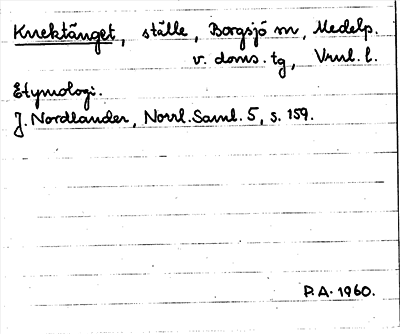 Knektänget, ställe, Borgsjö sn, Medelp.
v. doms. tg, Vrml. l.
Etymologi.
J. Nordlander, Norrl. Saml. 5, s. 159.
P.A. 1960.